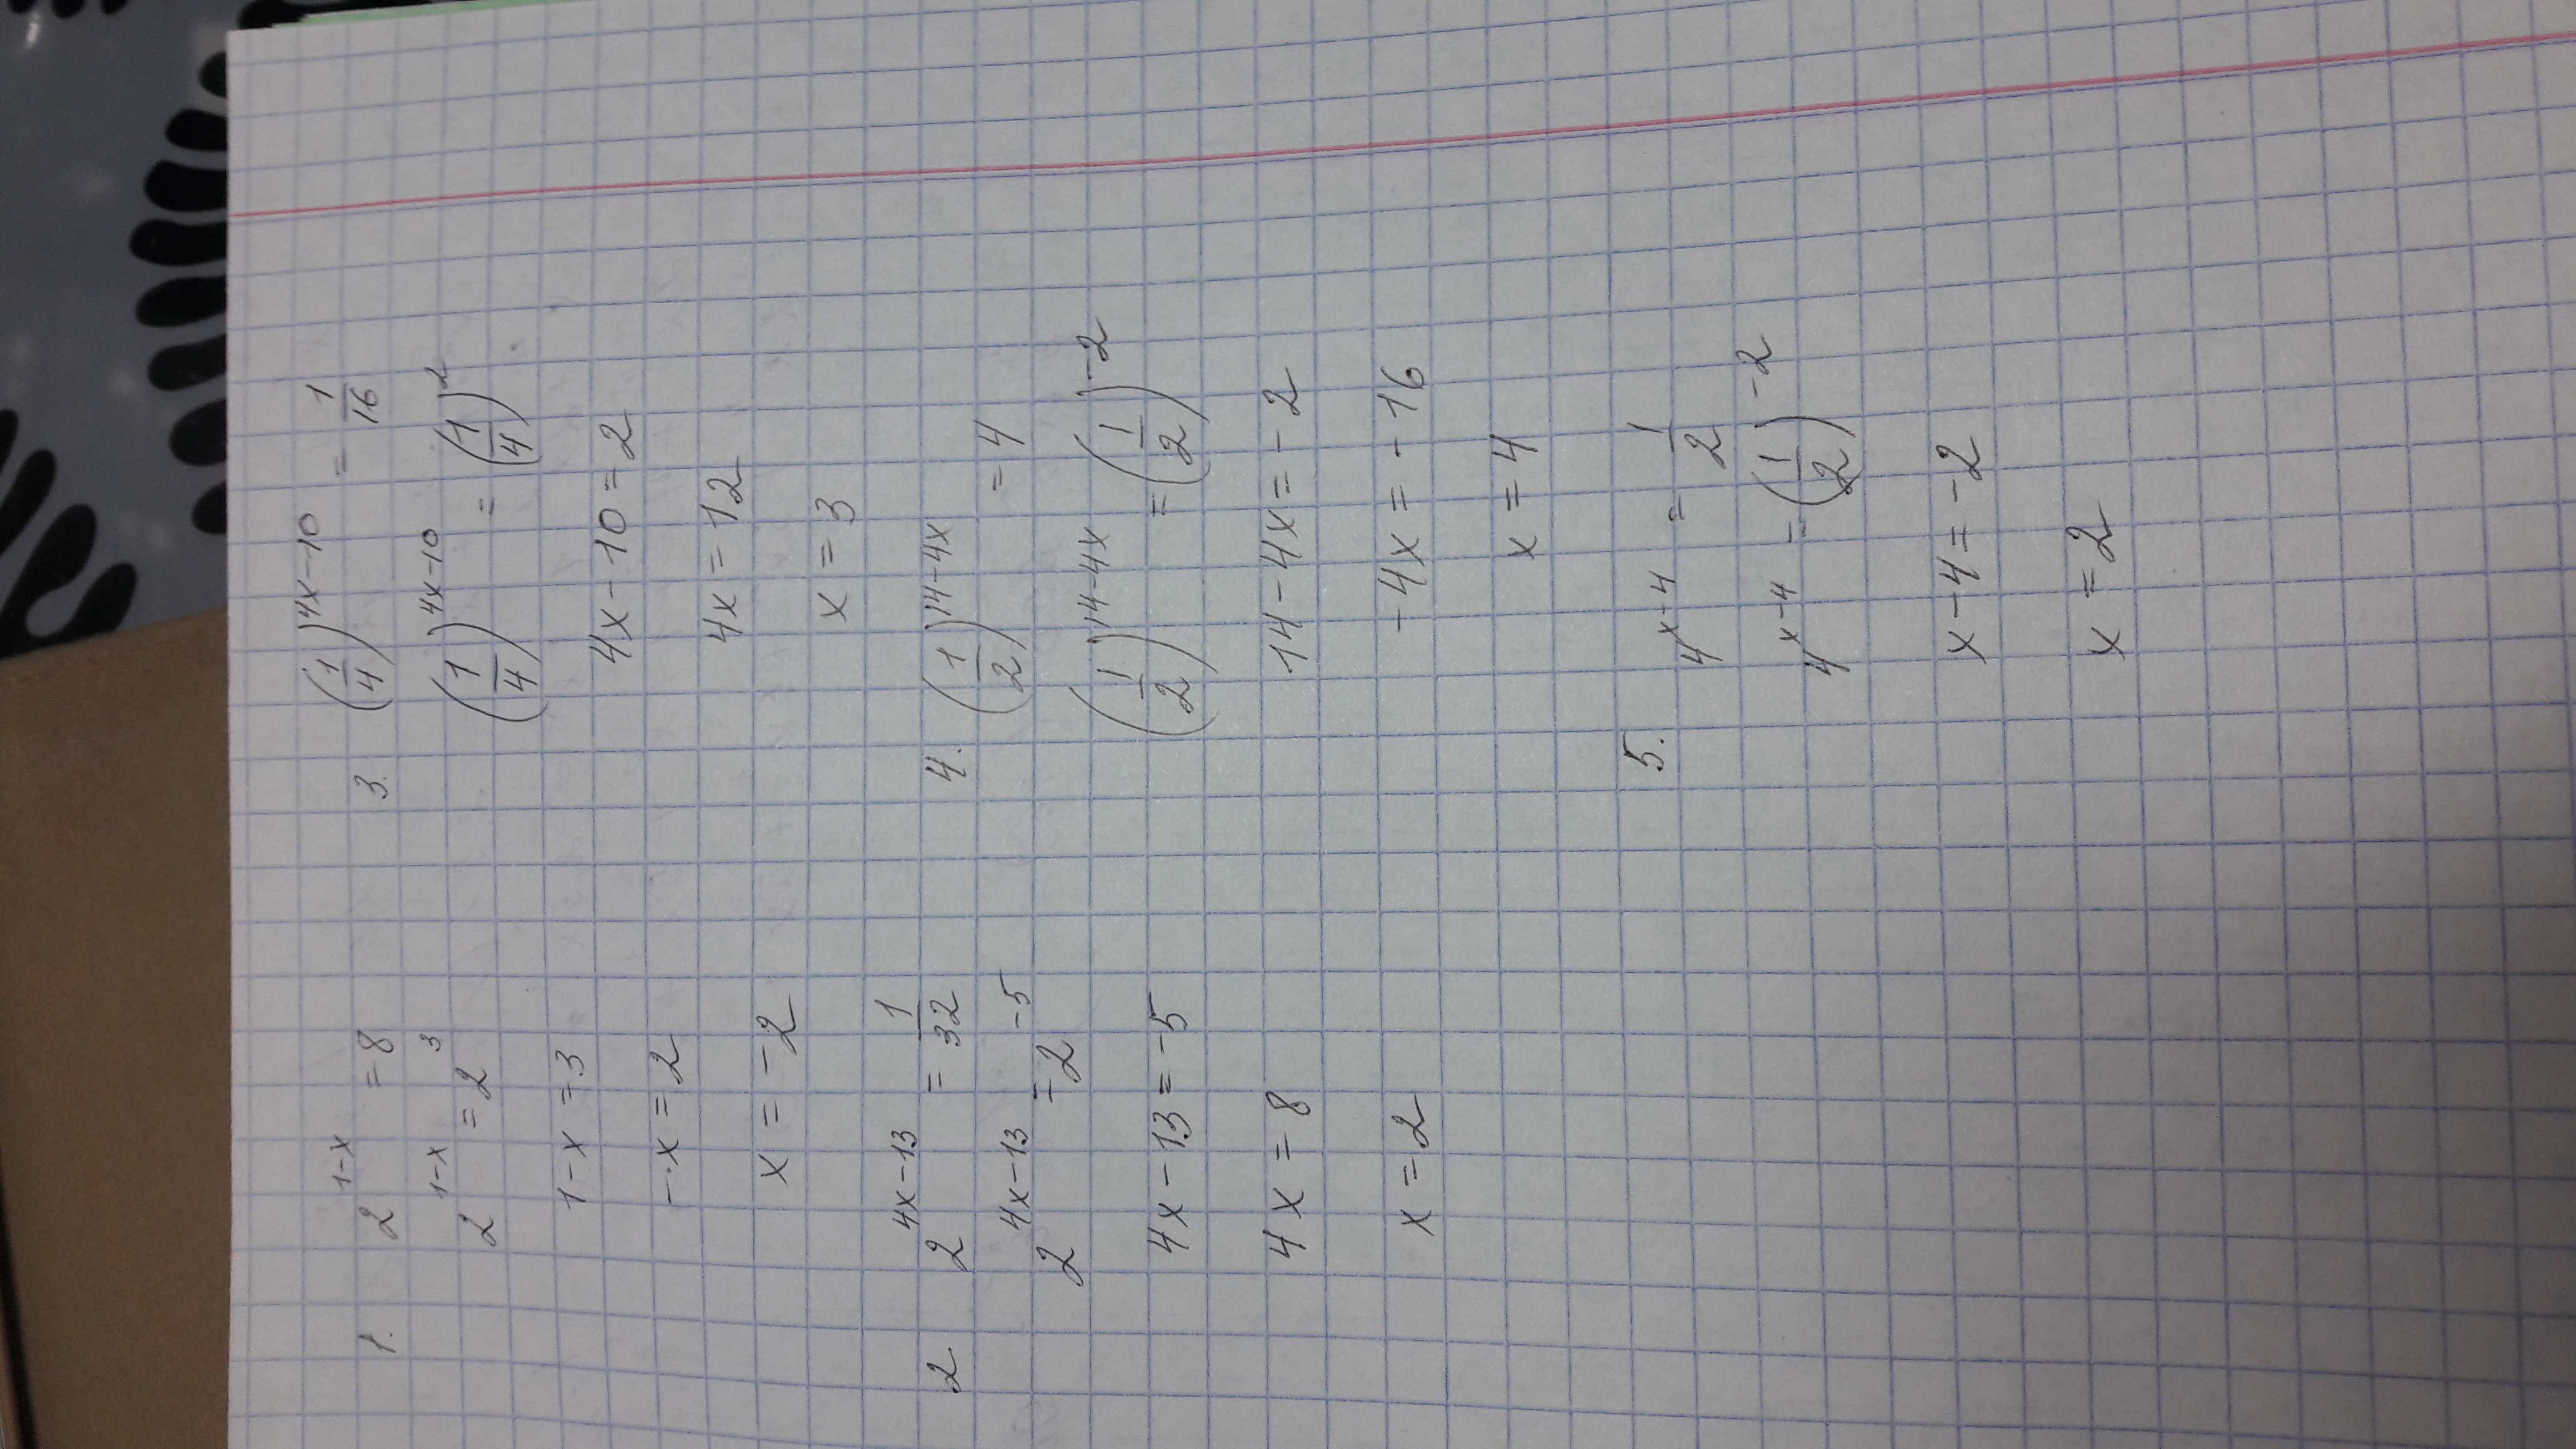 1. 2^{1-x} = 8
2^{1-x} = 2^3
1-x = 3
-x = 2
x = -2
2. 2^{4x-13} = \frac{1}{32}
2^{4x-13} = 2^{-5}
4x - 13 = -5
4x = 8
x = 2
3. (\frac{1}{4})^{4x-10} = \frac{1}{16}
(\frac{1}{4})^{4x-10} = (\frac{1}{4})^2
4x - 10 = 2
4x = 12
x = 3
4. (\frac{1}{2})^{14-4x} = 4
(\frac{1}{2})^{14-4x} = (\frac{1}{2})^{-2}
14 - 4x = -2
-4x = -16
x = 4
5. 4^{x-4} = \frac{1}{2}
4^{x-4} = (\frac{1}{2})^{-2}
x - 4 = -2
x = 2